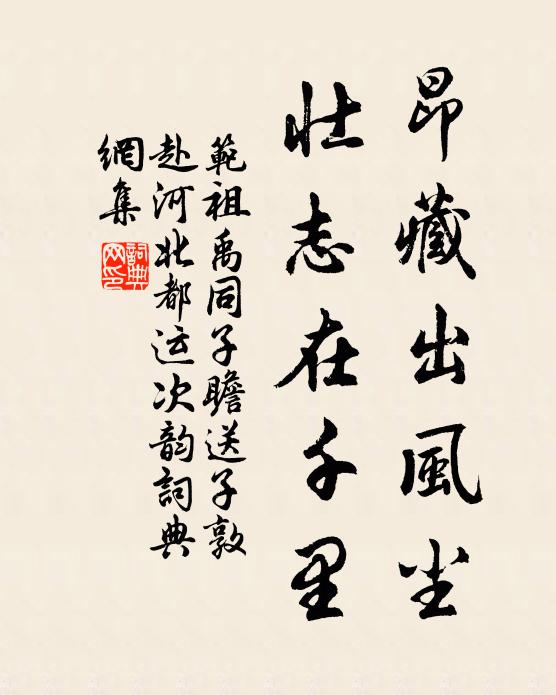 昂藏出風尘
壮志在千里
範祖禹同子瞻送子敦
赴河北都运次韵詞典
網集
詞典
网印